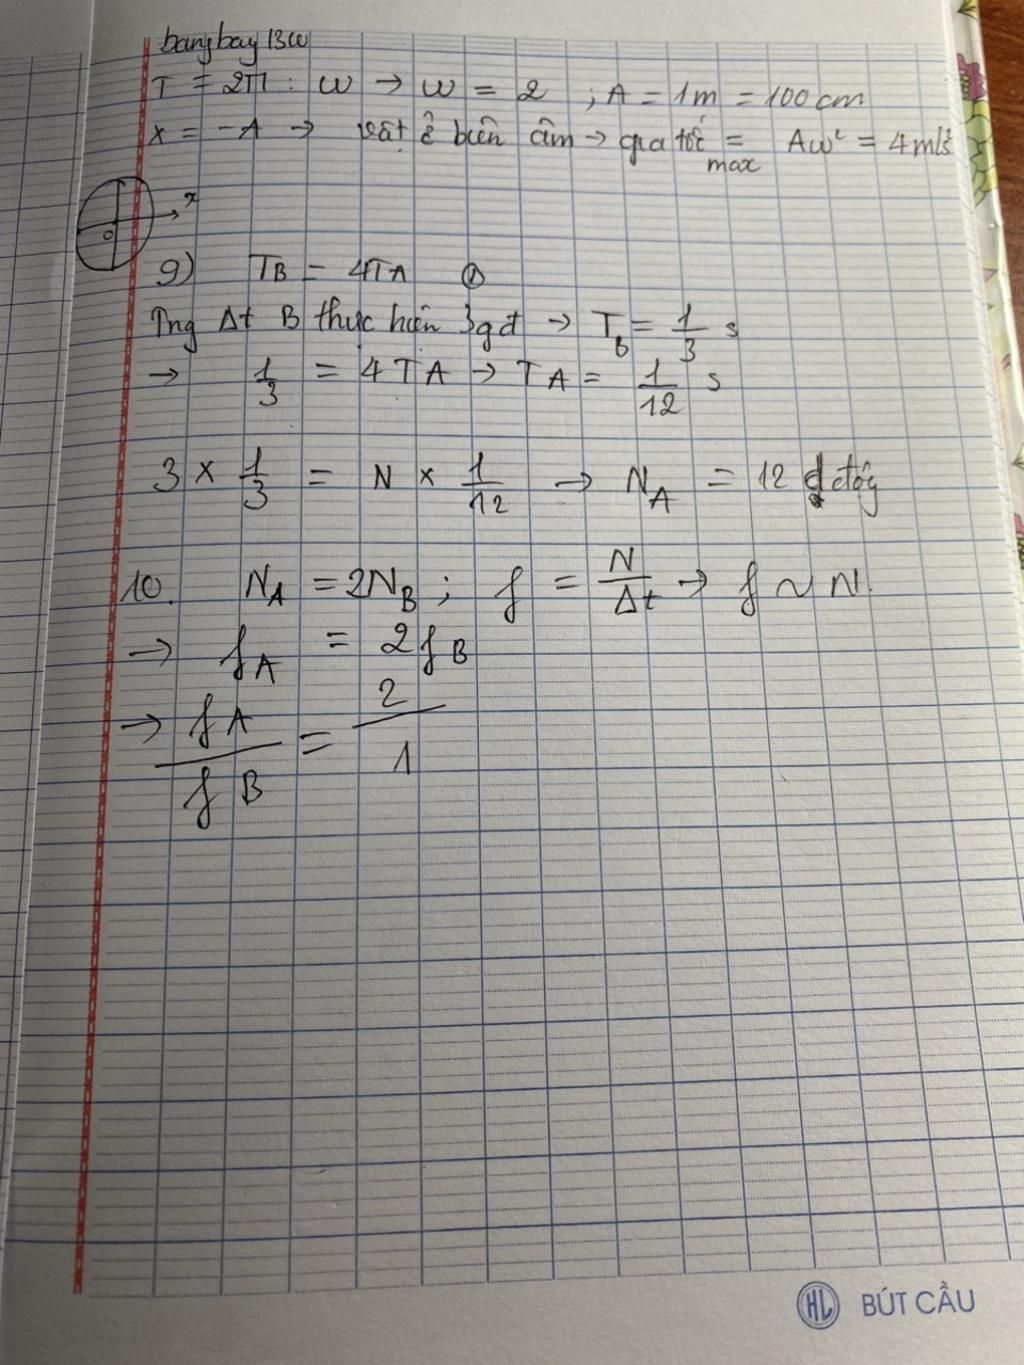 bangbay 13w
T = 2π : ω → ω = 2 ; A = 1m = 100cm
x = -A → vật ở biên âm → gia tốc max = Aω² = 4m/s²
x
O
9) TB = 4TA ①
Trng Δt B thực hiện 3gđ → TB = 1/3 s
→ 1/3 = 4TA → TA = 1/12 s
3 × 1/3 = N × 1/12 → NA = 12 d động
10. NA = 2NB ; f = N/Δt → f ~ N.
→ fA = 2fB
→ fA/fB = 2/1
HL BÚT CẦU